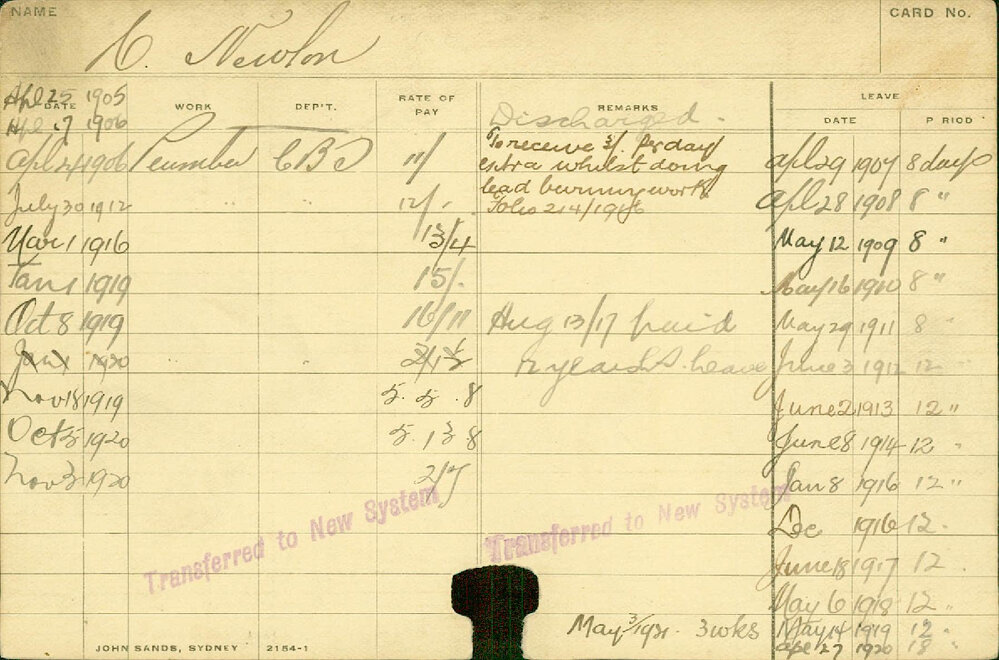 NAME
CARD No.
C. Newlon
Apl 25 1905
DATE WORK DEP'T. RATE OF PAY REMARKS LEAVE
DATE P RIOD
Apl 17 1906 Discharged.
Apl 24 1906 Plumber CBS 11/ To receive 3/. Per day
extra whilst doing
lead burning work
Folio 214/1916
Apl 29 1907 8 days
July 30 1912 12/. Apl 28 1908 8 "
Mar 1 1916 13/4 May 12 1909 8 "
Jan 1 1919 15/. May 16 1910 8 "
Oct 8 1919 16/11 Aug 13/17 paid May 29 1911 8 "
Jan 1 1920 leave June 3 1912 12 "
Nov 18 1919 5. 5. 8 June 2 1913 12 "
Oct 5 1920 5. 13 8 June 8 1914 12 "
Nov 3 1920 2/7 Jan 8 1916 12 "
Transferred to New System
Transferred to New System
Dec 1916 12 "
June 18 1917 12 "
May 6 1918 12 "
May 3/1921. 3 wks May 14 1919 12 "
Apl 27 1920 18 "
JOHN SANDS, SYDNEY 2154-1